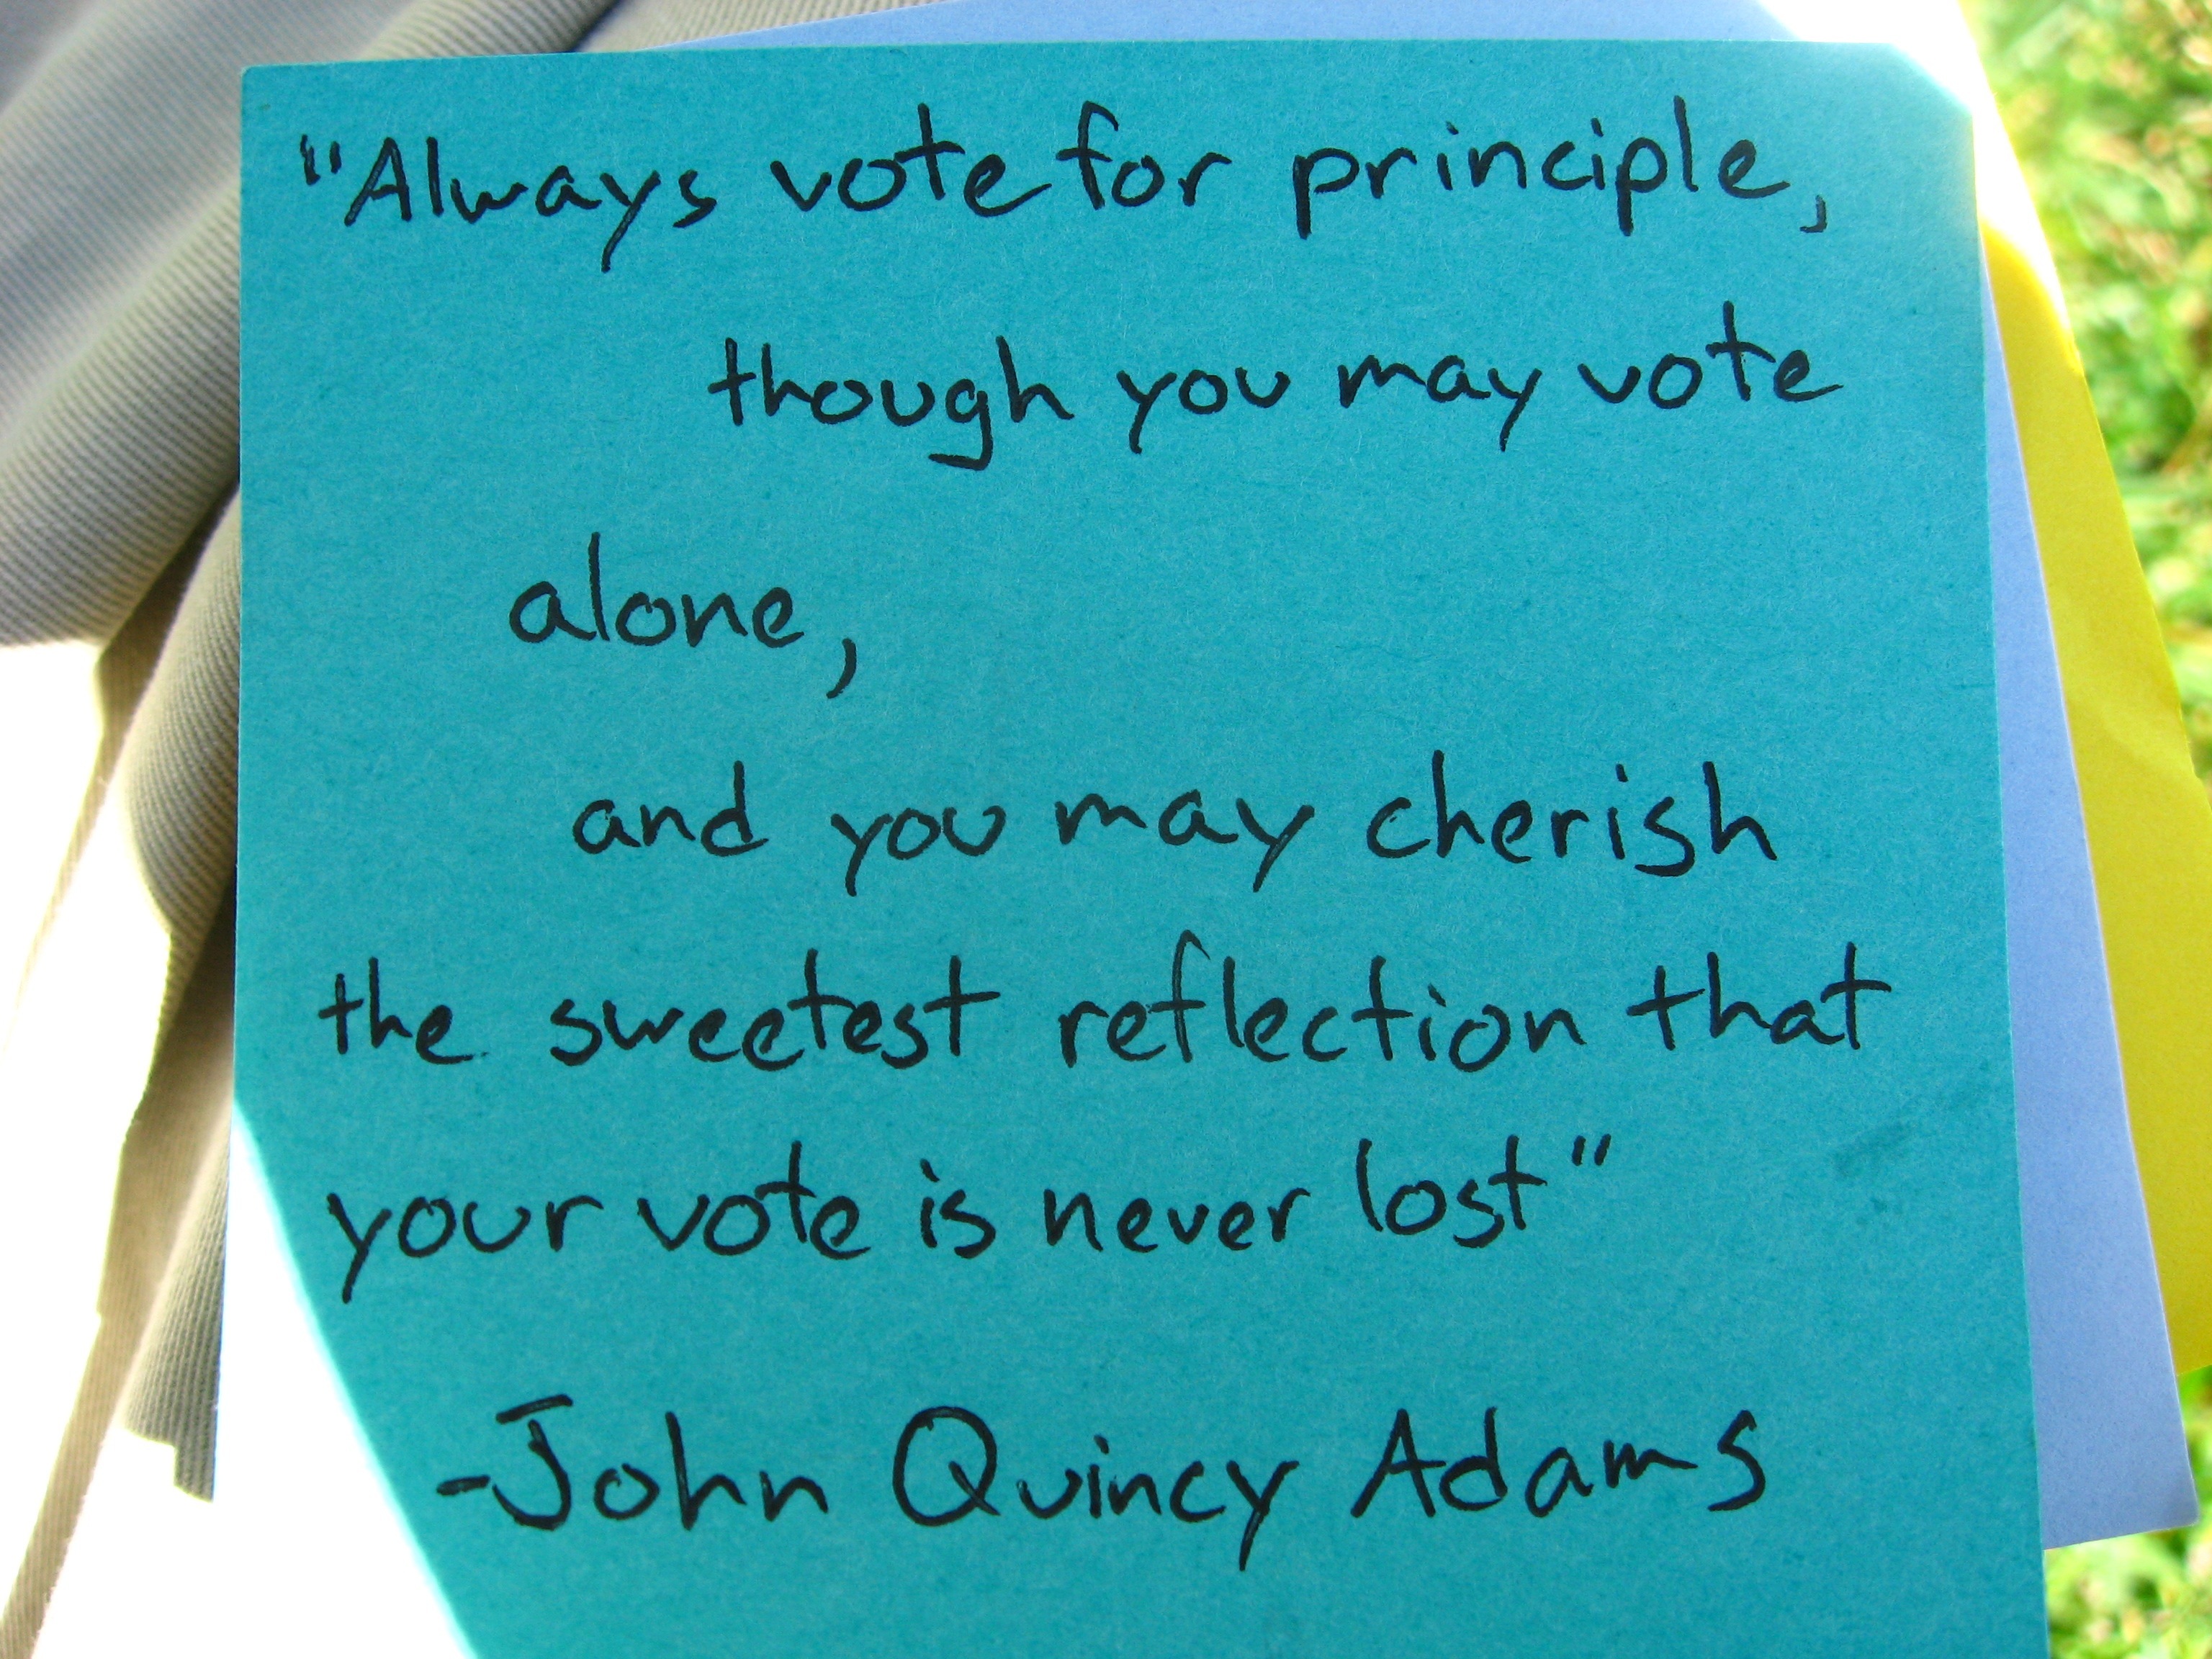 "Always vote for principle,
though you may vote
alone,
and you may cherish
the sweetest reflection that
your vote is never lost"
-John Quincy Adams